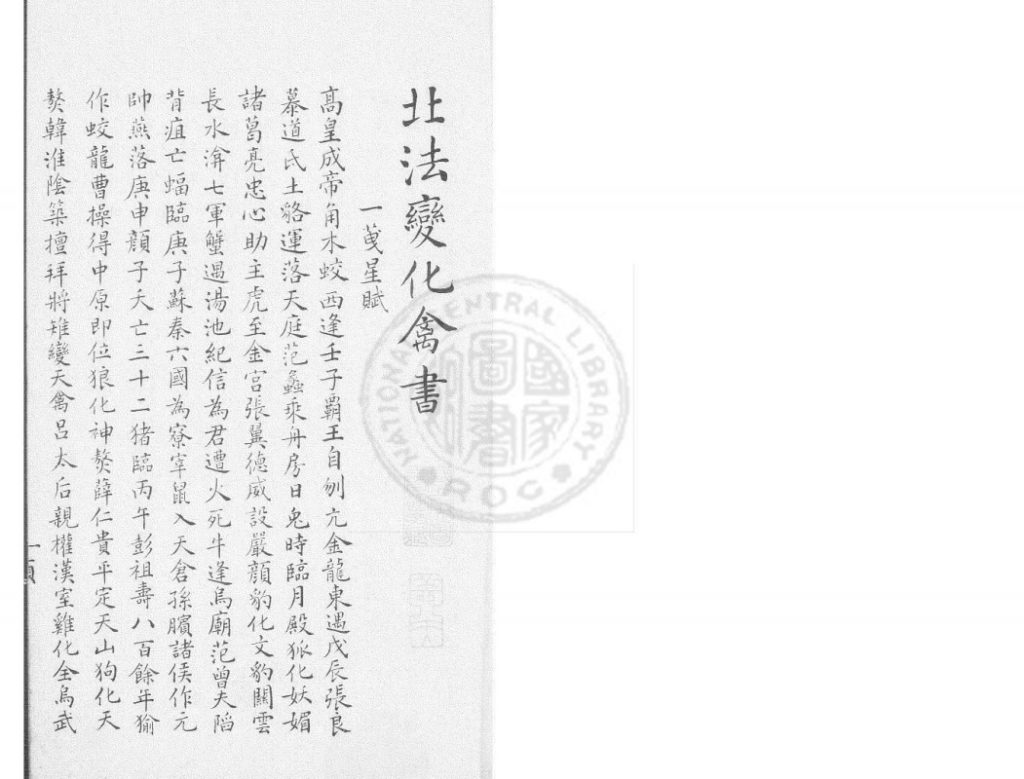 北法變化禽書
一蒐星賦
高皇成帝角木蛟西逢壬子霸王自刎亢金龍東遇戊辰張良
慕道氐土貉運落天庭范蠡乘舟房日兔時臨月殿狐化妖媚
諸葛亮忠心助主虎至金宮張翼德威設嚴顏豹化文豹關雲
長水渰七軍蟹遇湯池紀信為君遭火死牛逢烏廟范曾夫陷
背疽亡蝠臨庚子蘇秦六國為寮宰鼠入天倉孫臏諸侯作元
帥燕落庚申顏子夭亡三十二猪臨丙午彭祖壽八百餘年㺄
作蛟龍曹操得中原即位狼化神獒薛仁貴平定天山狗化天
獒韓淮陰築擅拜將雉變天禽呂太后親權漢室雞化全烏武
一頁
NATIONAL CENTRAL LIBRARY
國家圖書館
ROC